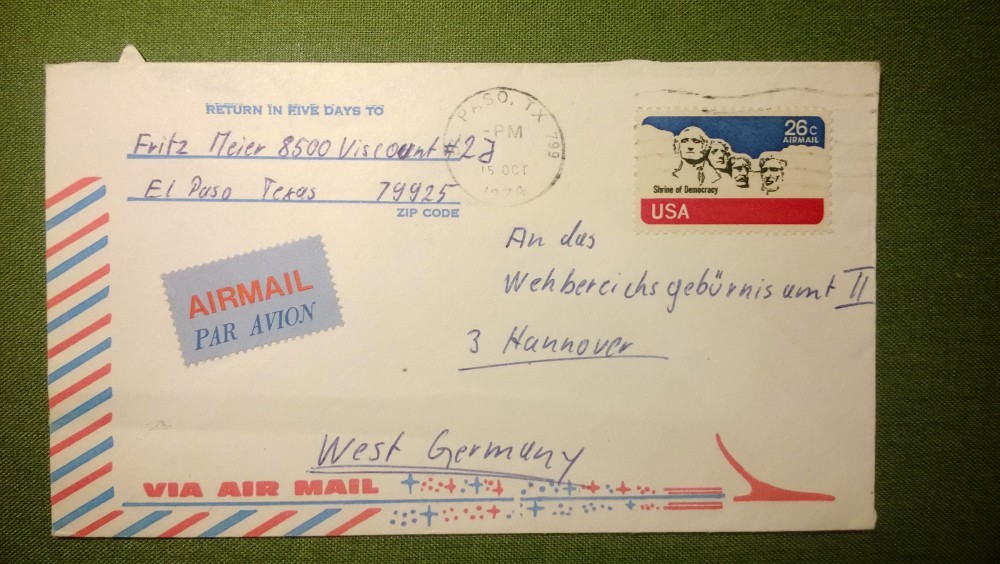 RETURN IN FIVE DAYS TO
Fritz Meier 8500 Viscount #2J
El Paso Texas 79925
ZIP CODE
PASO, TX 799
-PM
15 OCT
26c
AIRMAIL
Shrine of Democracy
USA
An das
Wehbereichsgebürnisamt II
3 Hannover
West Germany
AIRMAIL
PAR AVION
VIA AIR MAIL